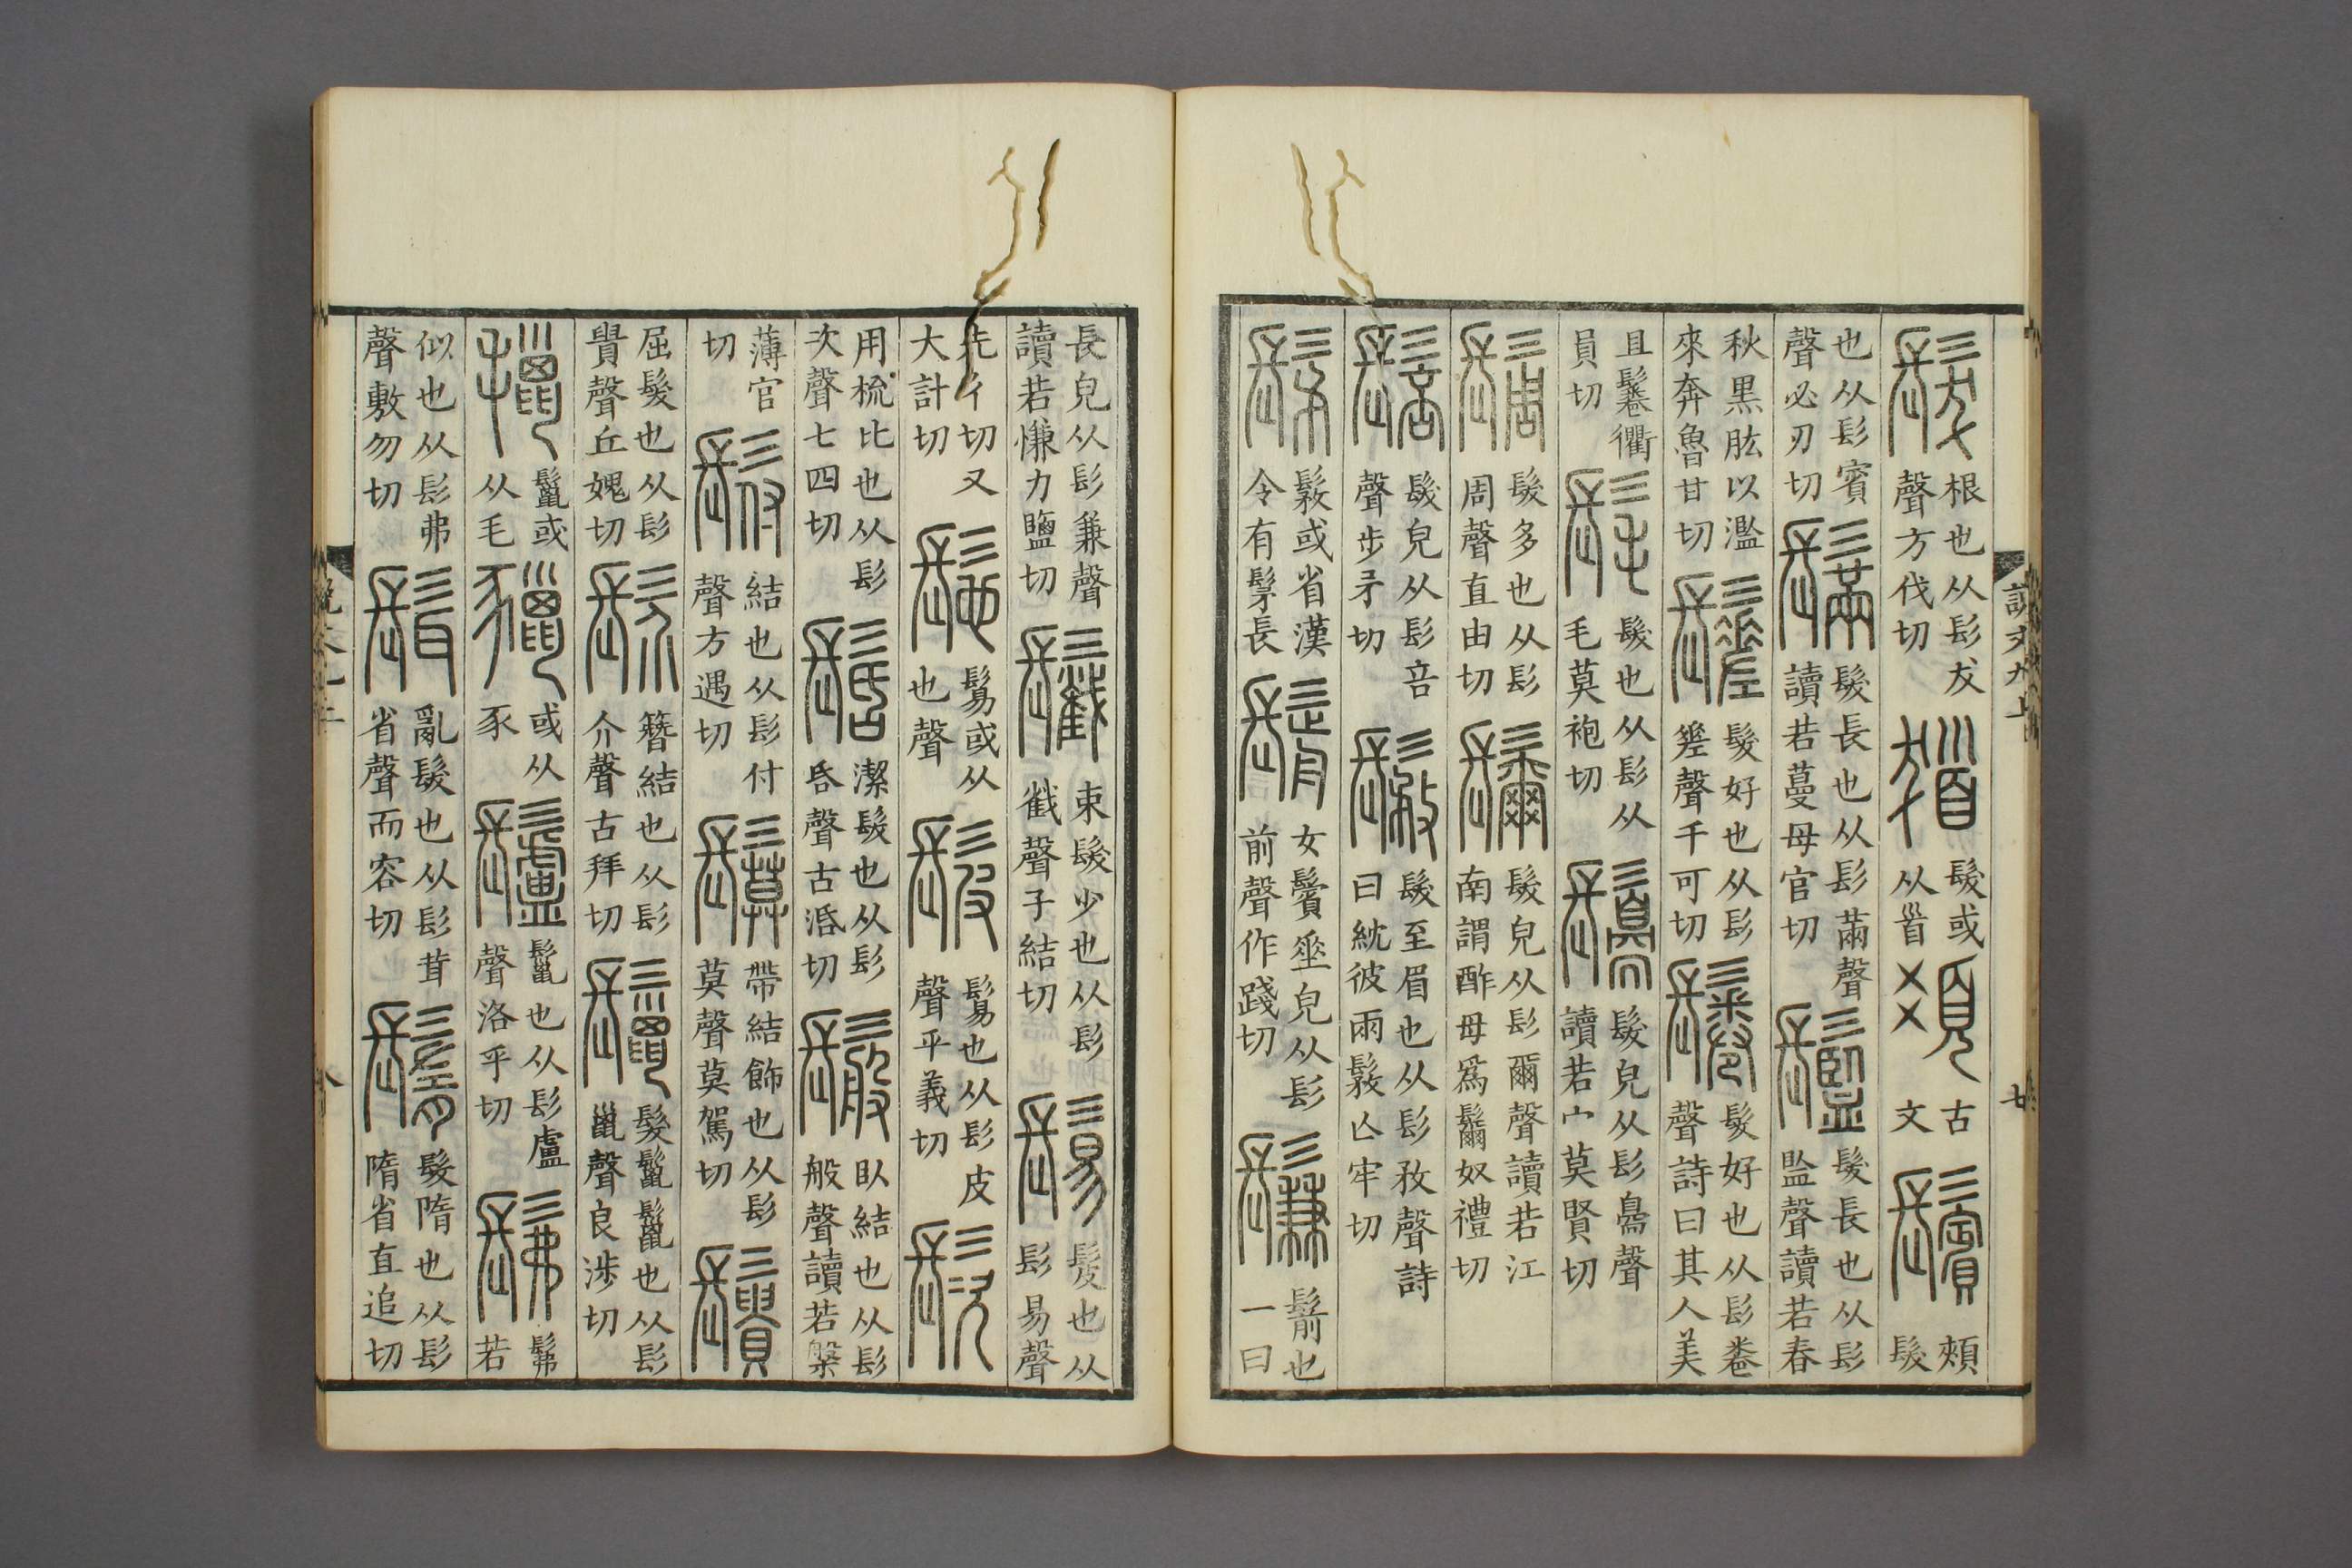 說文九上 七
髮 根也从髟犮聲方伐切 𩠙 髮或从𩠐 𩑔 古文 鬢 頰髮
也从髟賓聲必刃切 鬗 髮長也从髟㒼聲讀若蔓母官切 䰐 髮長也从髟監聲讀若春
秋黑肱以濫來奔魯甘切 髮好也从髟𢀩聲千可切 鬈 髮好也从髟卷聲詩曰其人美
且鬈衢員切 髦 髮也从髟从毛莫袍切 髮皃从髟臱聲讀若宀莫賢切
髮多也从髟周聲直由切 𩯨 髮皃从髟爾聲讀若江南謂酢母爲𩯨奴禮切
髮皃从髟咅聲步矛切 𩭾 髮至眉也从髟敄聲詩曰紞彼兩𩭾亡牢切
髳 𩭾或省漢令有髳長 鬋 女鬢垂皃从髟前聲作踐切 鬑 鬋也一曰
長皃从髟兼聲讀若慊力鹽切 束髮少也从髟𢧵聲子結切 鬄 髲也从髟易聲
先彳切又大計切 髢 鬄或从也聲 髲 鬄也从髟皮聲平義切 髟次
用梳比也从髟次聲七四切 髺 潔髮也从髟𠯑聲古活切 鬆 臥結也从髟般聲讀若槃
薄官切 髟付 結也从髟付聲方遇切 帶結飾也从髟莫聲莫駕切
屈髮也从髟貴聲丘媿切 髟介 簪結也从髟介聲古拜切 鬣 髮鬣鬣也从髟巤聲良涉切
鬣或从毛 或从豕 鬣也从髟盧聲洛乎切 髴 髴若
似也从髟弗聲敷勿切 髶 亂髮也从髟茸省聲而容切 鬌 髮隋也从髟隋省直追切
八